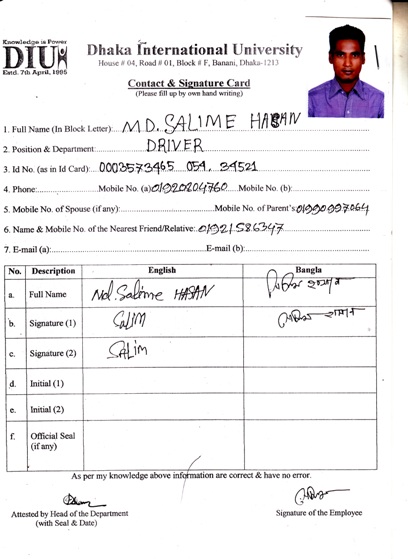 Knowledge is Power
DIU
Estd. 7th April, 1995
Dhaka International University
House # 04, Road # 01, Block # F, Banani, Dhaka-1213
Contact & Signature Card
(Please fill up by own hand writing)
1. Full Name (In Block Letter): MD. SALIME HASAN
2. Position & Department: DRIVER
3. Id No. (as in Id Card): 0003573465 054, 34521
4. Phone: Mobile No. (a) 01920204760 Mobile No. (b):
5. Mobile No. of Spouse (if any): Mobile No. of Parent's: 01990997064
6. Name & Mobile No. of the Nearest Friend/Relative: 01921586347
7. E-mail (a): E-mail (b):
No. Description English Bangla
a. Full Name Md. Salime HASAN হাসান
b. Signature (1) SALIM হাসান
c. Signature (2) SALim
d. Initial (1)
e. Initial (2)
f. Official Seal
(if any)
As per my knowledge above information are correct & have no error.
Attested by Head of the Department Signature of the Employee
(with Seal & Date)